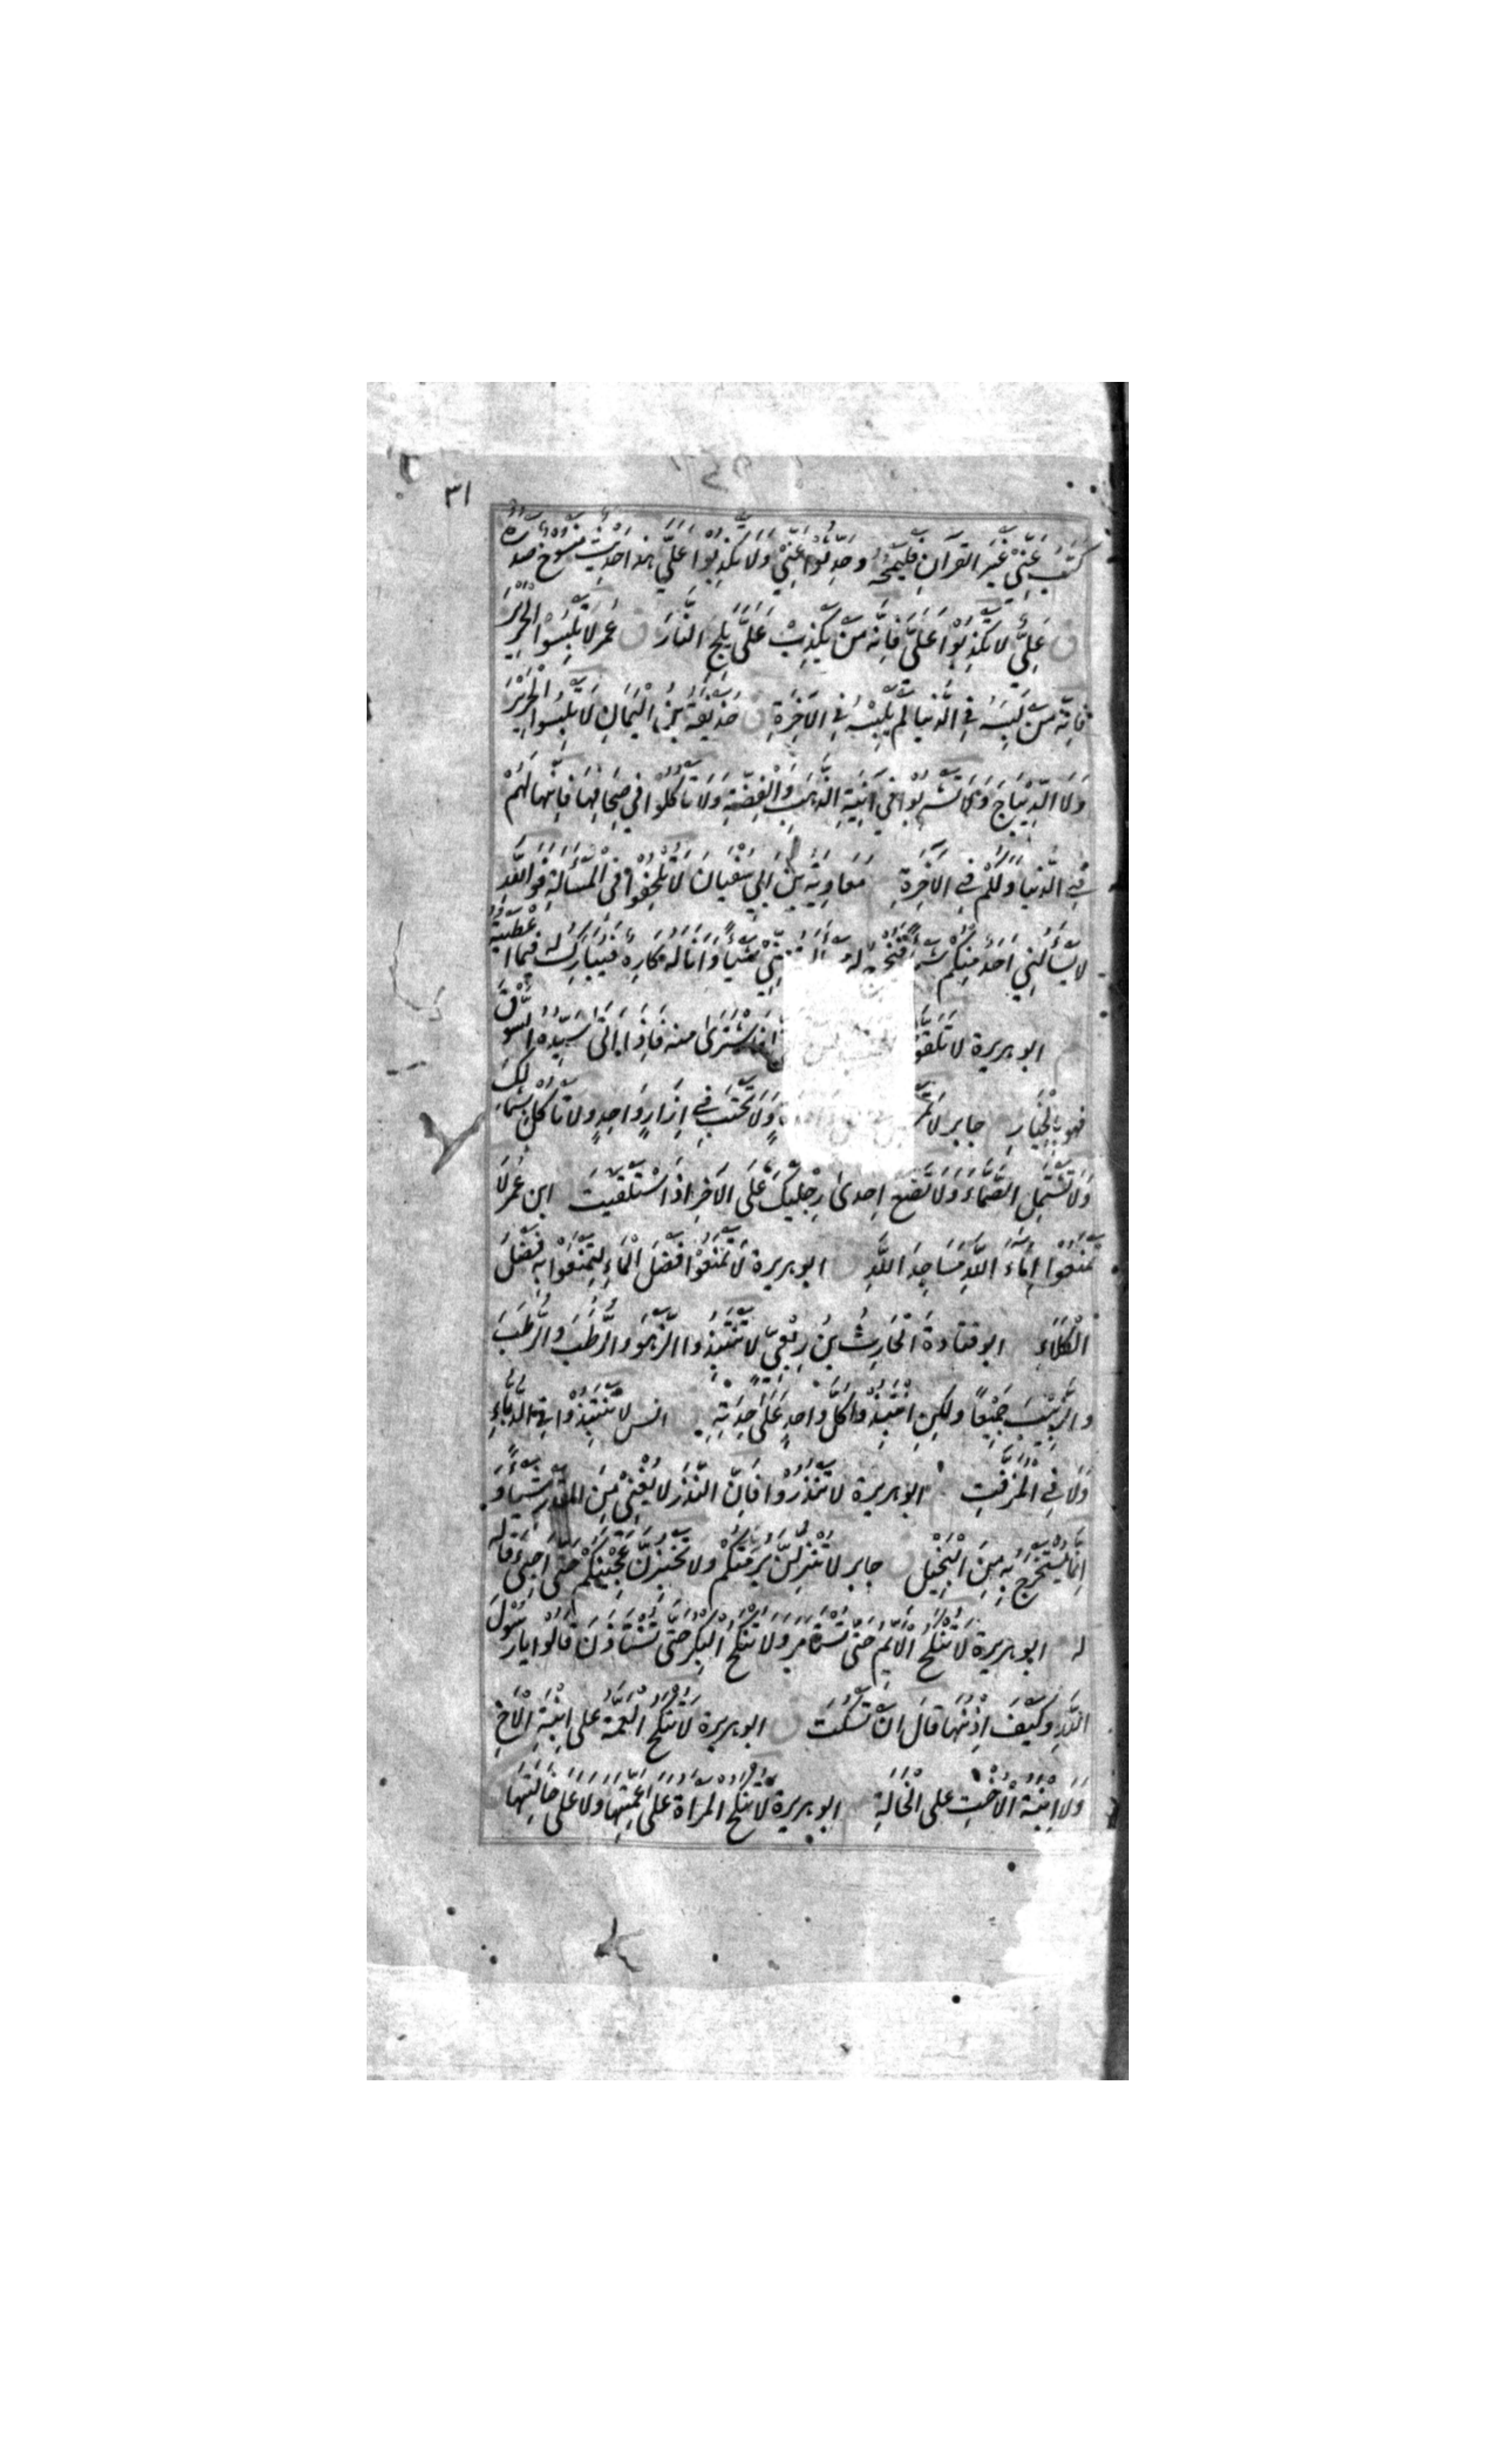 ٣١
كَتَبَ عَنِّيْ غَيْرَ القُرآنِ فَلْيَمْحُهُ وحَدِّثُوْا عَنِّيْ وَلَا تَكْذِبُوْا عَلَيَّ هذا حَدِيْث مَنْسُوْخ صدره
ق عَلِيٌّ لا تَكْذِبُوْا عَلَيَّ فَاِنَّه مَنْ يَكْذِبْ عَلَيَّ يَلِجِ النَّارَ ق عُمَر لَا تَلْبَسُوْا الْحَرِيْرَ
فَاِنَّه مَنْ لَبِسَهُ فِي الدُّنيا لَمْ يَلْبَسْهُ فِي الآخِرَةِ ق حُذَيْفَة بْنُ الْيَمَانِ لَا تَلْبَسُوا الْحَرِيْرَ
وَلَا الدِّيْبَاجَ وَلَا تَشْرَبُوْا فِيْ آنِيَةِ الذَّهَبِ وَالْفِضَّةِ وَلَا تَأكُلُوْا فِي صِحَافِهَا فَاِنَّهَا لَهُمْ
فِي الدُّنيَا وَلَكُمْ فِي الآخِرَةِ مُعَاوِيَة بْنُ اَبِي سُفْيَانَ لَا تُلْحِفُوْا فِي الْمَسْأَلَةِ فَوَاللّهِ
لا يَسْأَلُنِي اَحَدٌ مِنْكُمْ شَيْئًا فَتُخْرِجَ لَهُ مِنِّيْ شَيْئًا وَاَنَا لَهُ كَارِهٌ فَيُبَارَكَ لَهُ فِيْمَا اَعْطَيْتُهُ
ابو هريرة لا تَلَقَّوُا فَاشْتَرَى منه فَاِذَا اَتَى سَيِّدُهُ السُّوْقَ
فهو بِالْخِيَارِ جابر لا وَلَا تَحْتَبِ فِي اِزَارٍ وَاحِدٍ ولا تَأكُلْ بِشِمَالِكَ
وَلَا تَشْتَمِلِ الصَّمَّاءَ وَلَا تَضَعْ اِحدىٰ رِجْلَيْكَ عَلَى الاُخرٰى اِذَا اسْتَلْقَيْتَ ابن عُمَر لَا
تَمْنَعُوْا اِمَاءَ اللّهِ مَسَاجِدَ اللّهِ ق ابو هريرة لَا تَمْنَعُوْا فَضْلَ الْمَاءِ لِتَمْنَعُوْا بِهِ فَضْلَ
الْكَلَاءِ ابو قتادة الْحَارِثُ بنُ رِبْعِيّ لا تَنْتَبِذُوا الزَّهْوَ وَالرُّطَبَ وَالرُّطَبَ
والزَّبِيْبَ جَمِيْعًا ولكِنِ انْتَبِذُوا كُلَّ وَاحِدٍ عَلَى حِدَتِهِ انس لا تَنْتَبِذُوْا فِي الدُّبَّاءِ
وَلَا فِي الْمُزَفَّتِ ابو هريرة لا تَنْذُرُوْا فَاِنَّ النَّذْرَ لا يُغْنِيْ مِنَ القَدَرِ شَيْئًا وَ
اِنَّمَا يُسْتَخْرَجُ بِهِ مِنَ الْبَخِيْلِ ق جابر لا تُنْزِلُنَّ بُرْمَتَكُمْ ولا تَخْبِزُنَّ عَجِيْنَكُمْ حَتَّى اَجِيْءَ قَالَه
له ابو هريرة لَا تُنْكَحُ الْاَيِّمُ حَتّى تُسْتَأْمَرَ ولا تُنْكَحُ الْبِكْرُ حَتّى تُسْتَأْذَنَ قَالُوا يَا رَسُوْلَ
اللّهِ وَكَيْفَ اِذْنُهَا قَالَ اَنْ تَسْكُتَ ق ابو هريرة لَا تُنْكَحُ الْعَمَّة على ابْنَةِ الْاَخِ
وَلَا ابْنَةُ الْاُخْتِ على الْخَالَةِ ابو هريرة لَا تُنْكَحُ المَرْاَة عَلَى عَمَّتِهَا وَلَا عَلَى خَالَتِهَا